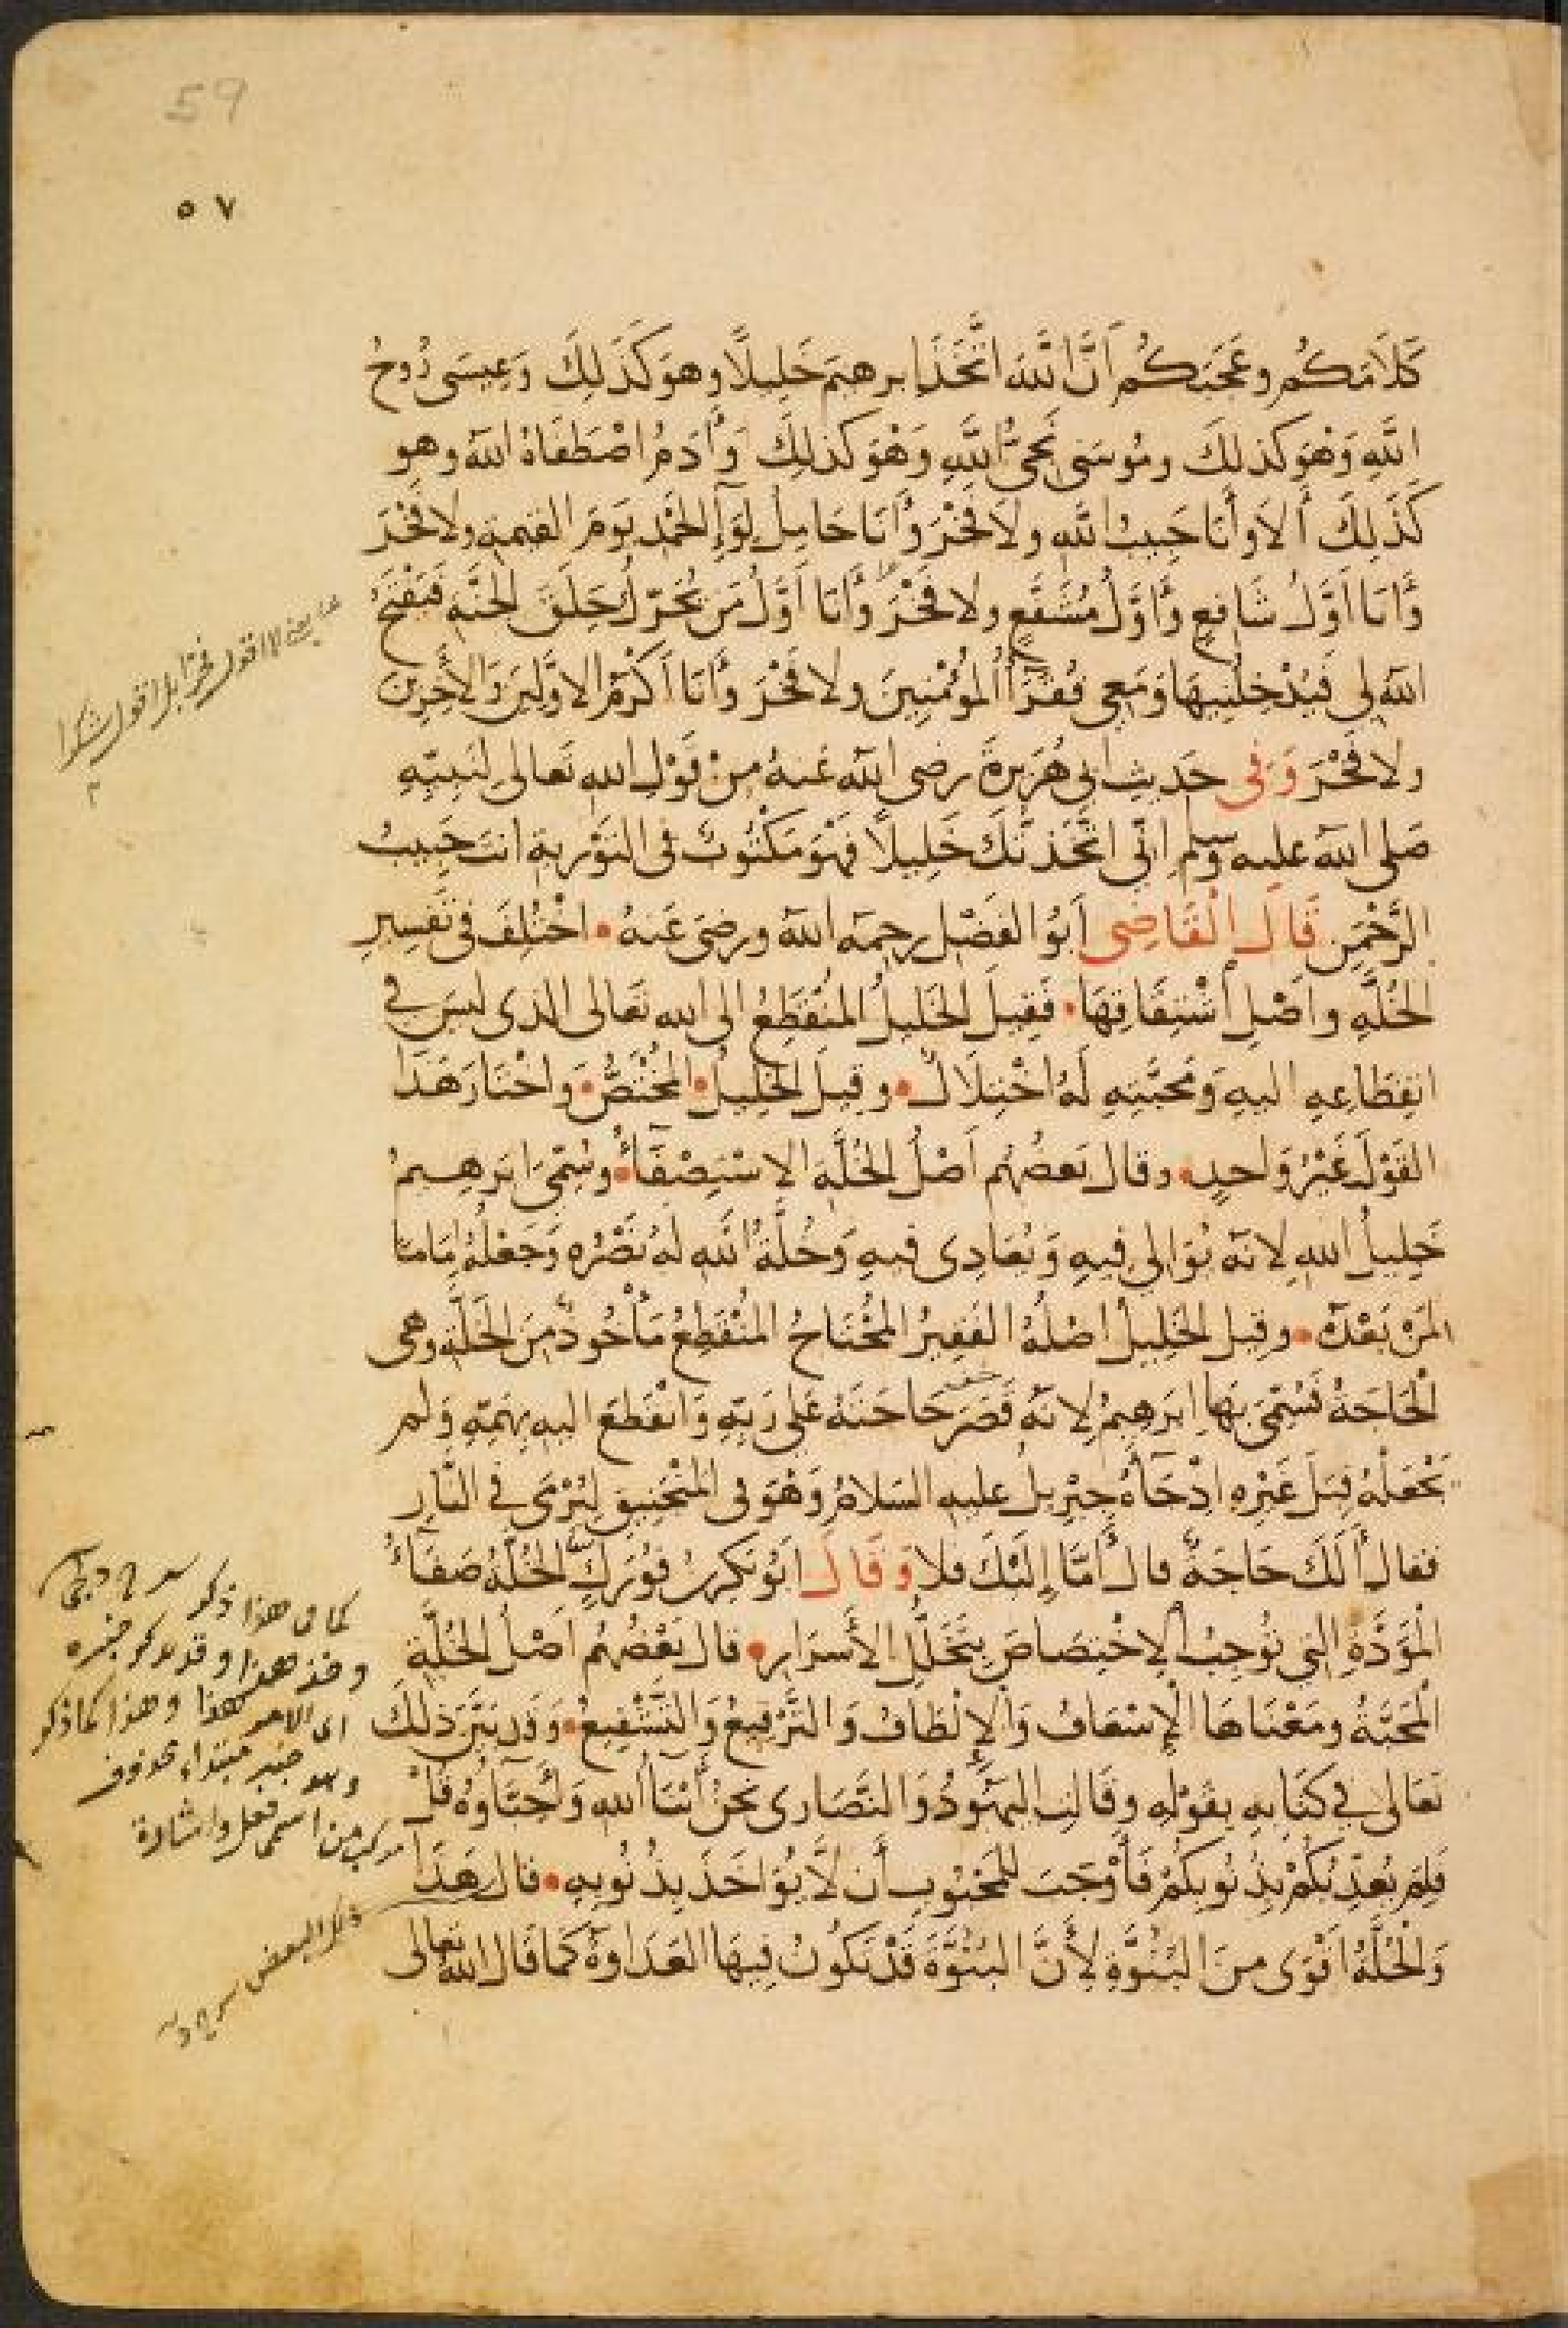 59
٥٧
كَلَامَكُم وعَجَبَكُم اَنَّ اللهَ اتَّخَذَ ابرهيمَ خَلِيلًا وهوَ كَذَلِكَ وَعِيسَى رُوحُ
اللَّهِ وَهْوَ كذلِكَ ومُوسَى نَجِيُّ اللَّهِ وَهْوَ كذلِكَ وَاٰدَمُ اصْطَفَاهُ اللهُ وهو
كَذَلِكَ أَلاَ وأَنَا حَبِيبُ اللهِ ولاَ فَخْرَ وَأَنَا حَامِلُ لِوَآءِ الحَمْدِ يَوْمَ القيمةِ ولا فَخْرَ
وَأَنَا اَوَّلُ شَافِعٍ وَأَوَّلُ مُشَفَّعٍ ولا فَخْرَ وَأَنَا اَوَّلُ مَن يُحَرِّكُ حِلَقَ الجنّةِ فَيَفْتَحُ
اللهُ لى فَيُدْخِلُنِيهَا وَمَعِى فُقَرَآءُ المُؤْمِنِينَ ولا فَخْرَ وأَنَا اَكْرَمُ الاوَّلِينَ وَالأَخِرِينَ
ولا فَخْرَ وَفى حَدِيثِ ابى هُرَيرةَ رضى اللهُ عَنهُ مِنْ قَوْلِ اللهِ تَعالى لِنَبِيِّهِ
صَلى اللهُ عليه وسلم انّى اتَّخَذْتُكَ خَلِيلًا فَهْوَ مَكْتُوبٌ فى التَوْرٰيةِ انتَ حَبِيبُ
الرَّحْمٰنِ قَالَ الْقَاضِى اَبُو الفَضْلِ رحِمَه اللهُ ورضىَ عَنهُ • اخْتُلِفَ فى تَفْسِيرِ
الخُلَّةِ واَصْلِ اشْتِقَاقِهَا • فَقِيلَ الخَلِيلُ المُنْقَطِعُ الى اللهِ تَعَالى الذى ليسَ فى
انقِطَاعِهِ اليهِ وَمَحَبَّتِهِ لَهُ اخْتِلَالٌ • وقيلَ الخَلِيلُ • المُخْتَصُّ • وَاخْتَارَ هَذَا
القَوْلَ غَيْرُ وَاحدٍ • وقال بَعضُهُم اَصْلُ الخُلَّةِ الاسْتِصْفَآءُ • وسُمِّىَ ابرهيمُ
خَلِيلُ اللهِ لِانّه يُوَالِى فِيهِ وَيُعَادِى فيهِ وَخُلَّةُ اللهِ لَهُ نَصْرُه وَجَعْلُهُ إِمَاما
لِمَنْ بَعْدَهُ • وقيل الخَلِيلُ اَصْلُهُ الفَقِيرُ المُحْتَاجُ المُنْقَطِعُ مَأْخُوذٌ مِنَ الخَلَّةِ وهى
الْحَاجَةُ فَسُمِّىَ بِهَا ابرهِيمُ لِانّه قَصَرَ حَاجَتَهُ عَلى رَبِّهِ وَانْقَطَعَ اليهِ بِهَمِّهِ وَلم
يَجْعَلْهُ قِبَلَ غَيْرِهِ اِذْ جَآءَهُ جِبْرِيلُ عليهِ السَلامُ وَهْوَ فى المَنْجَنِيقِ لِيُرْمَى فى النَّارِ
فقال أَلَكَ حَاجَةٌ قال أَمَّا إِلَيْكَ فلا وَقَالَ ابَوُ بَكرِ بنُ فُورَكٍ الخُلَّةُ صَفَآءُ
الْمَوَدَّةِ التى تُوجِبُ الاِخْتِصَاصَ بِتَخَلُّلِ الأَسْرَارِ • قال بَعْضُهُم اَصْلُ الخُلَّةِ
الْمَحَبَّةُ ومَعْنَاهَا الْإِسْعَافُ وَالإِلْطَافُ وَالتَّرْفِيعُ وَالتَّشْفِيعُ • وَقد بَيَّنَ ذٰلِكَ
تَعَالى فى كتَابِهِ بِقَوْلِهِ وقَالَتِ اليَهُودُ وَالنَّصَارى نَحْنُ أَبْنَآءُ اللهِ وَأَحِبَّاؤُهُ قُلْ
فَلِمَ يُعَذِّبُكُمْ بِذُنُوبِكُمْ فَأَوْجَبَ لِلمَحْبُوبِ أَن لَّا يُؤَاخَذَ بِذُنُوبِهِ • قال هَذَا
وَالْخُلَّةُ اَقْوَى مِنَ البُنُوَّةِ لِأَنَّ البُنُوَّةَ قَدْ تَكُونُ فِيهَا العَدَاوَةُ كَمَا قَال اللهُ تعالى
يعنى لا اقول فخرًا بل اقول شكرا
كما فى هذا ذكر
وخذ هذا وقد يذكر خبره
اى الامر هكذا وهذا كما ذكر
وهو خبر مبتداء محذوف
مركب من اسم فعل واشارة
ذكر البعض